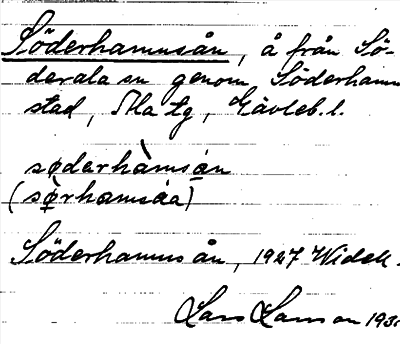 Söderhamnsån, å från Sö-
derala sn genom Söderhamn
stad, Ala tg, Gävleb. l.
sødərhàmsán
(sø̀rhamsáa)
Söderhamns ån, 1927 Widell.
Lars Larsson 193